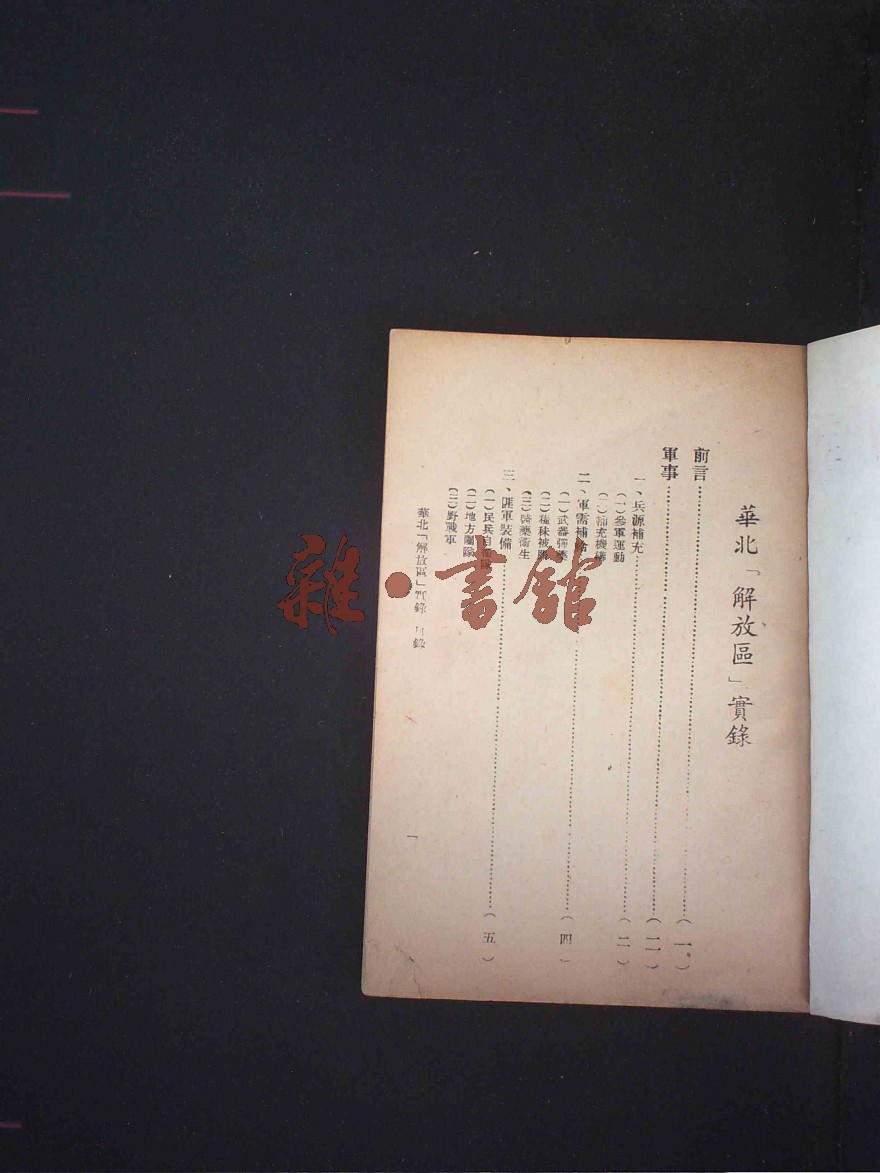 華北「解放區」實錄
前言……………………(一)
軍事……………………(二)
一、兵源補充……………………(二)
(一)參軍運動
(二)補充機構
二、軍需補給……………………(四)
(一)武器彈藥
(二)糧秣被服
(三)醫藥衛生
三、匪軍裝備……………………(五)
(一)民兵自衛隊
(二)地方團隊
(三)野戰軍
華北「解放區」實錄 目錄
一
雜·書館